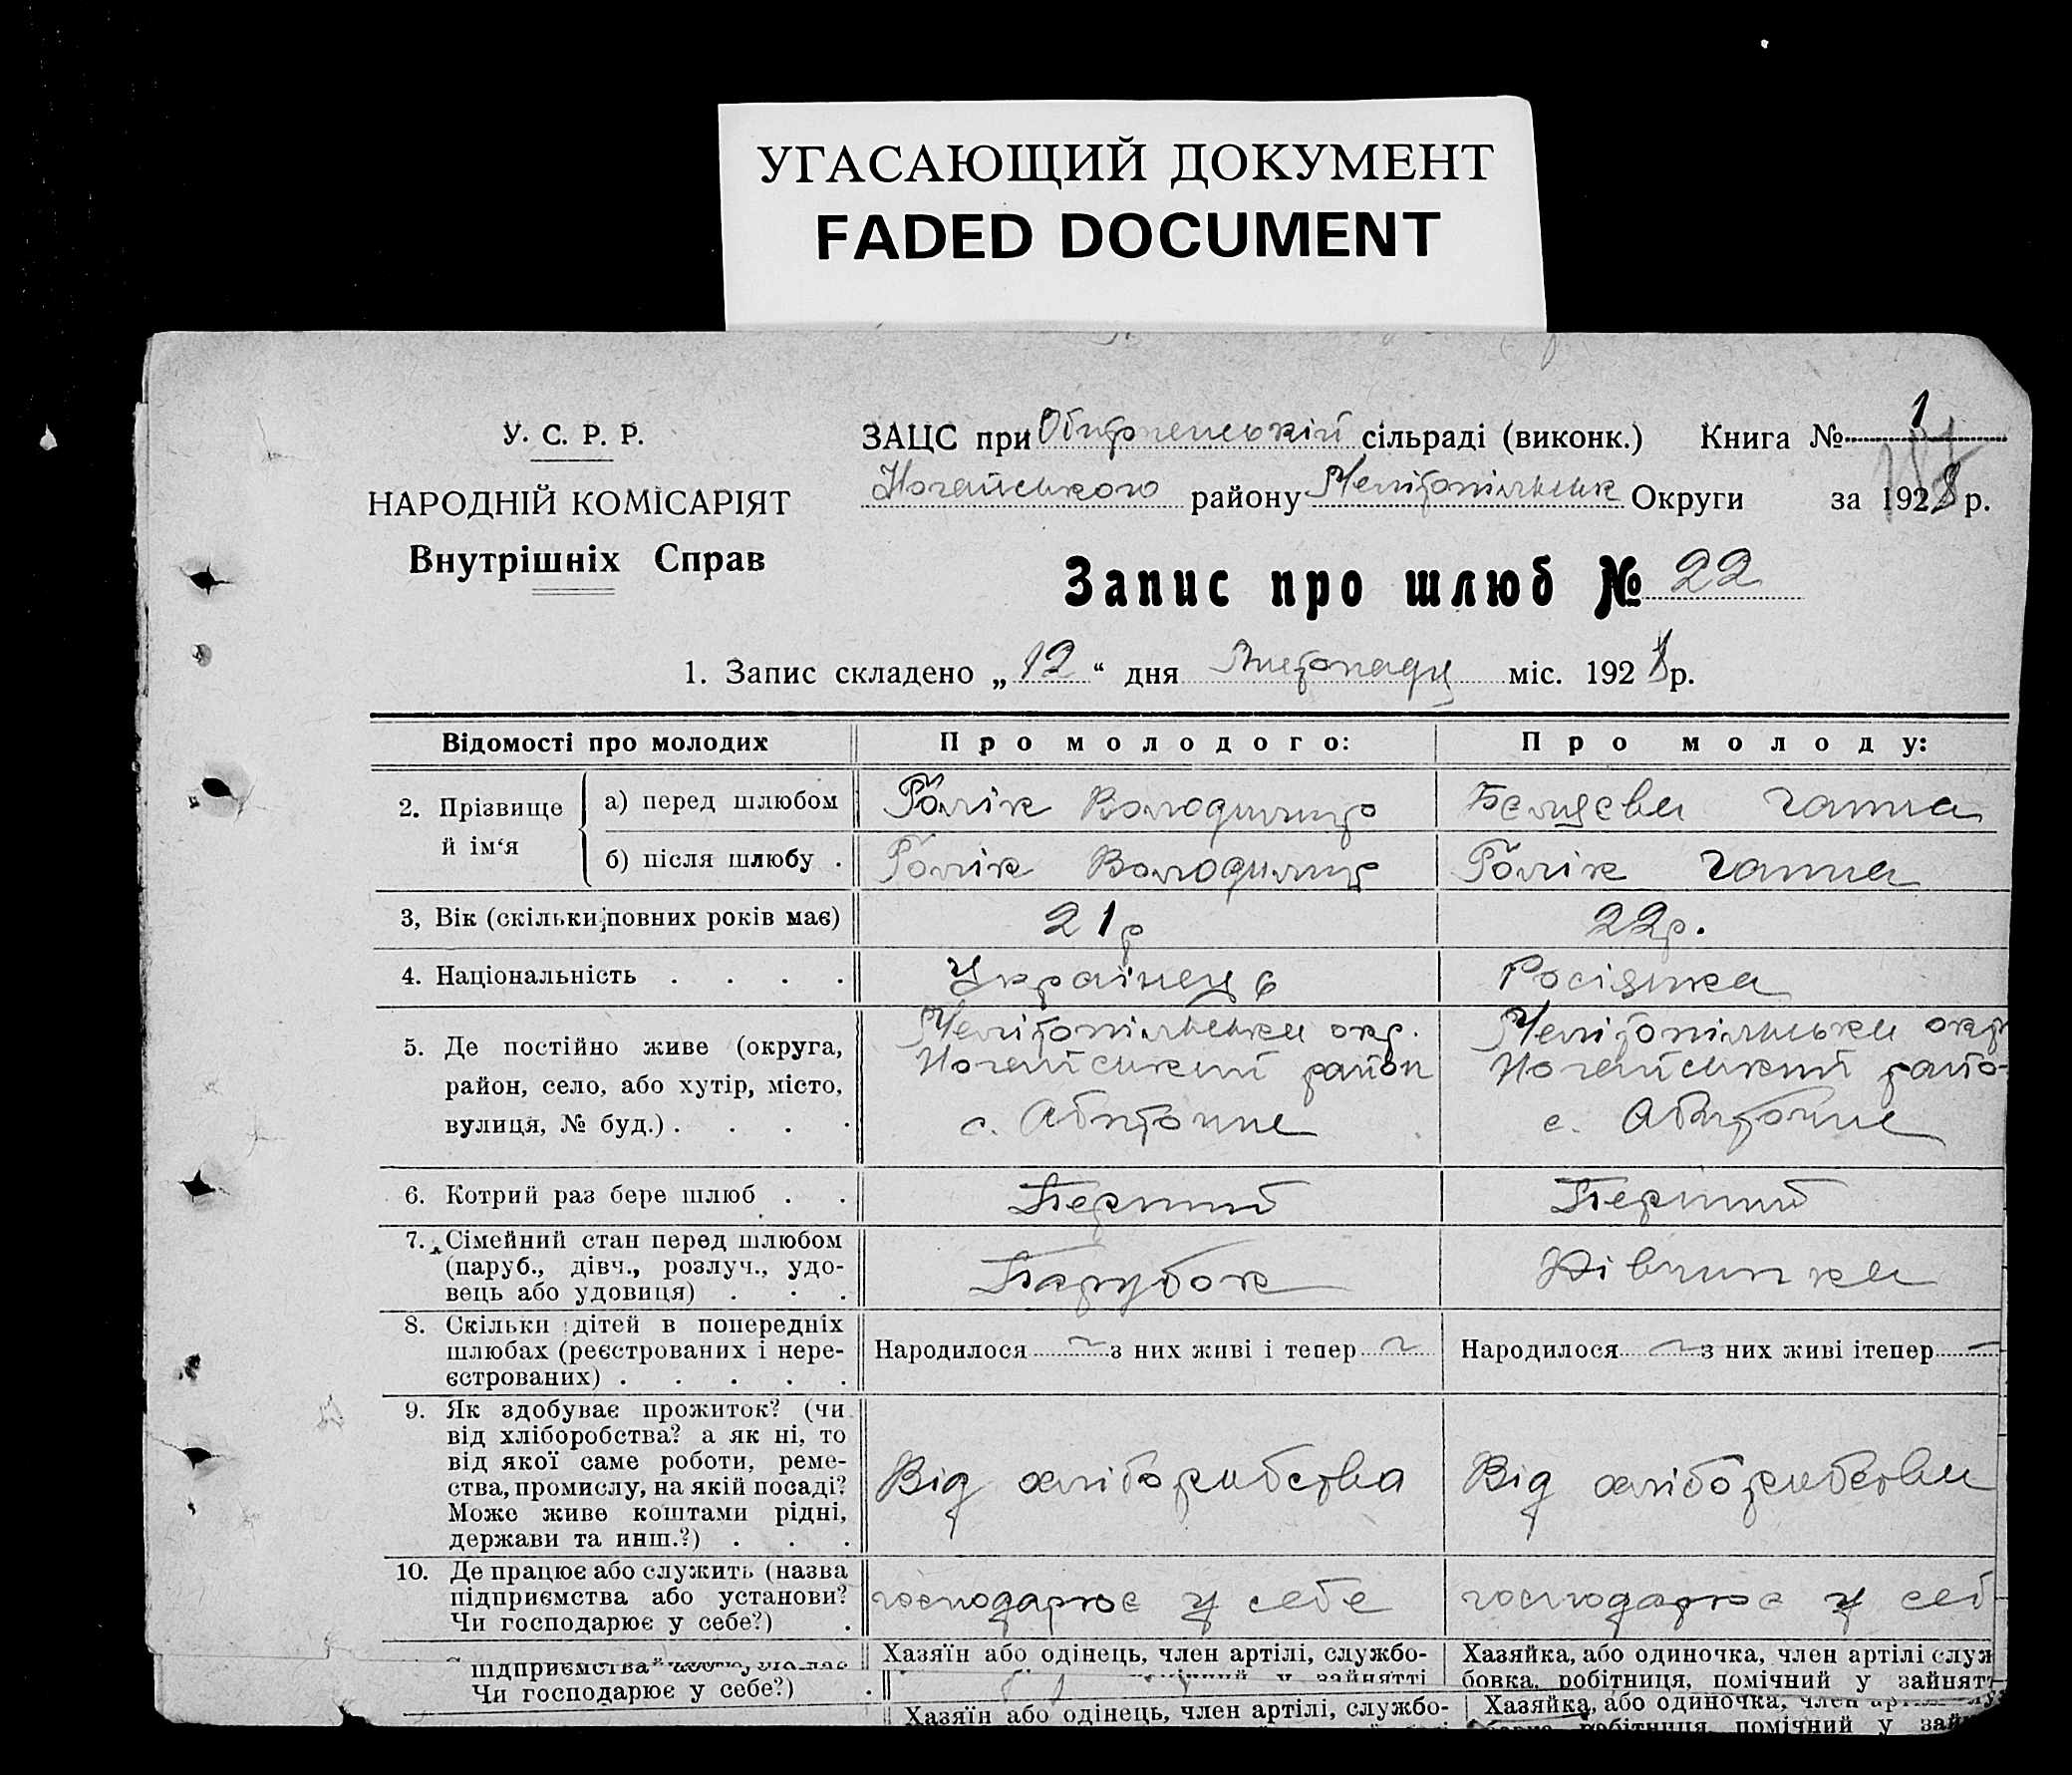 УГАСАЮЩИЙ ДОКУМЕНТ
FADED DOCUMENT
У. С. Р. Р.
НАРОДНІЙ КОМІСАРІЯТ
Внутрішніх Справ
ЗАЦС при сільраді (виконк.) Книга № 1
Ногайського району Округи за 1928 р.
Запис про шлюб № 22
1. Запис складено „ 12 “ дня Листопаду міс. 1928 р.
Відомості про молодих
Про молодого:
Про молоду:
2. Прізвище й ім‘я
а) перед шлюбом
Ролік Володимир
Ганна
б) після шлюбу .
Ролік Володимир
Ролік Ганна
3, Вік (скільки повних років має)
21 р
22 р.
4. Національність . . . .
Українець
Росіянка
5. Де постійно живе (округа,
район, село, або хутір, місто,
вулиця, № буд.) . . . .
Мелітопільська окр.
Ногайський район
с. Обиточне
Мелітопільська окр
Ногайський райо-
с. Обиточне
6. Котрий раз бере шлюб . .
Перший
Перший
7. Сімейний стан перед шлюбом
(паруб., дівч., розлуч., удо-
вець або удовиця) . . .
Парубок
Дівчинка
8. Скільки дітей в попередніх
шлюбах (реєстрованих і нере-
єстрованих) . . . . .
Народилося ~ з них живі і тепер ~
Народилося ~ з них живі ітепер ~
9. Як здобуває прожиток? (чи
від хліборобства? а як ні, то
від якої саме роботи, реме-
ства, промислу, на якій посаді?
Може живе коштами рідні,
держави та инш.?) . . .
Від хліборобства
Від хліборобства
10. Де працює або служить (назва
підприємства або установи?
Чи господарює у себе?) .
господарює у себе
господарює у себ
Хазяїн або одінець, член артілі, службо-
Хазяйка, або одиночка, член артілі служ
бовка, робітниця, помічний у зайнят
підприємства
зайнятті
Чи господарює у себе?) .
Хазяїн або одінець, член артілі, службо-
Хазяйка, або одиночка, член
робітниця, помічний у зай